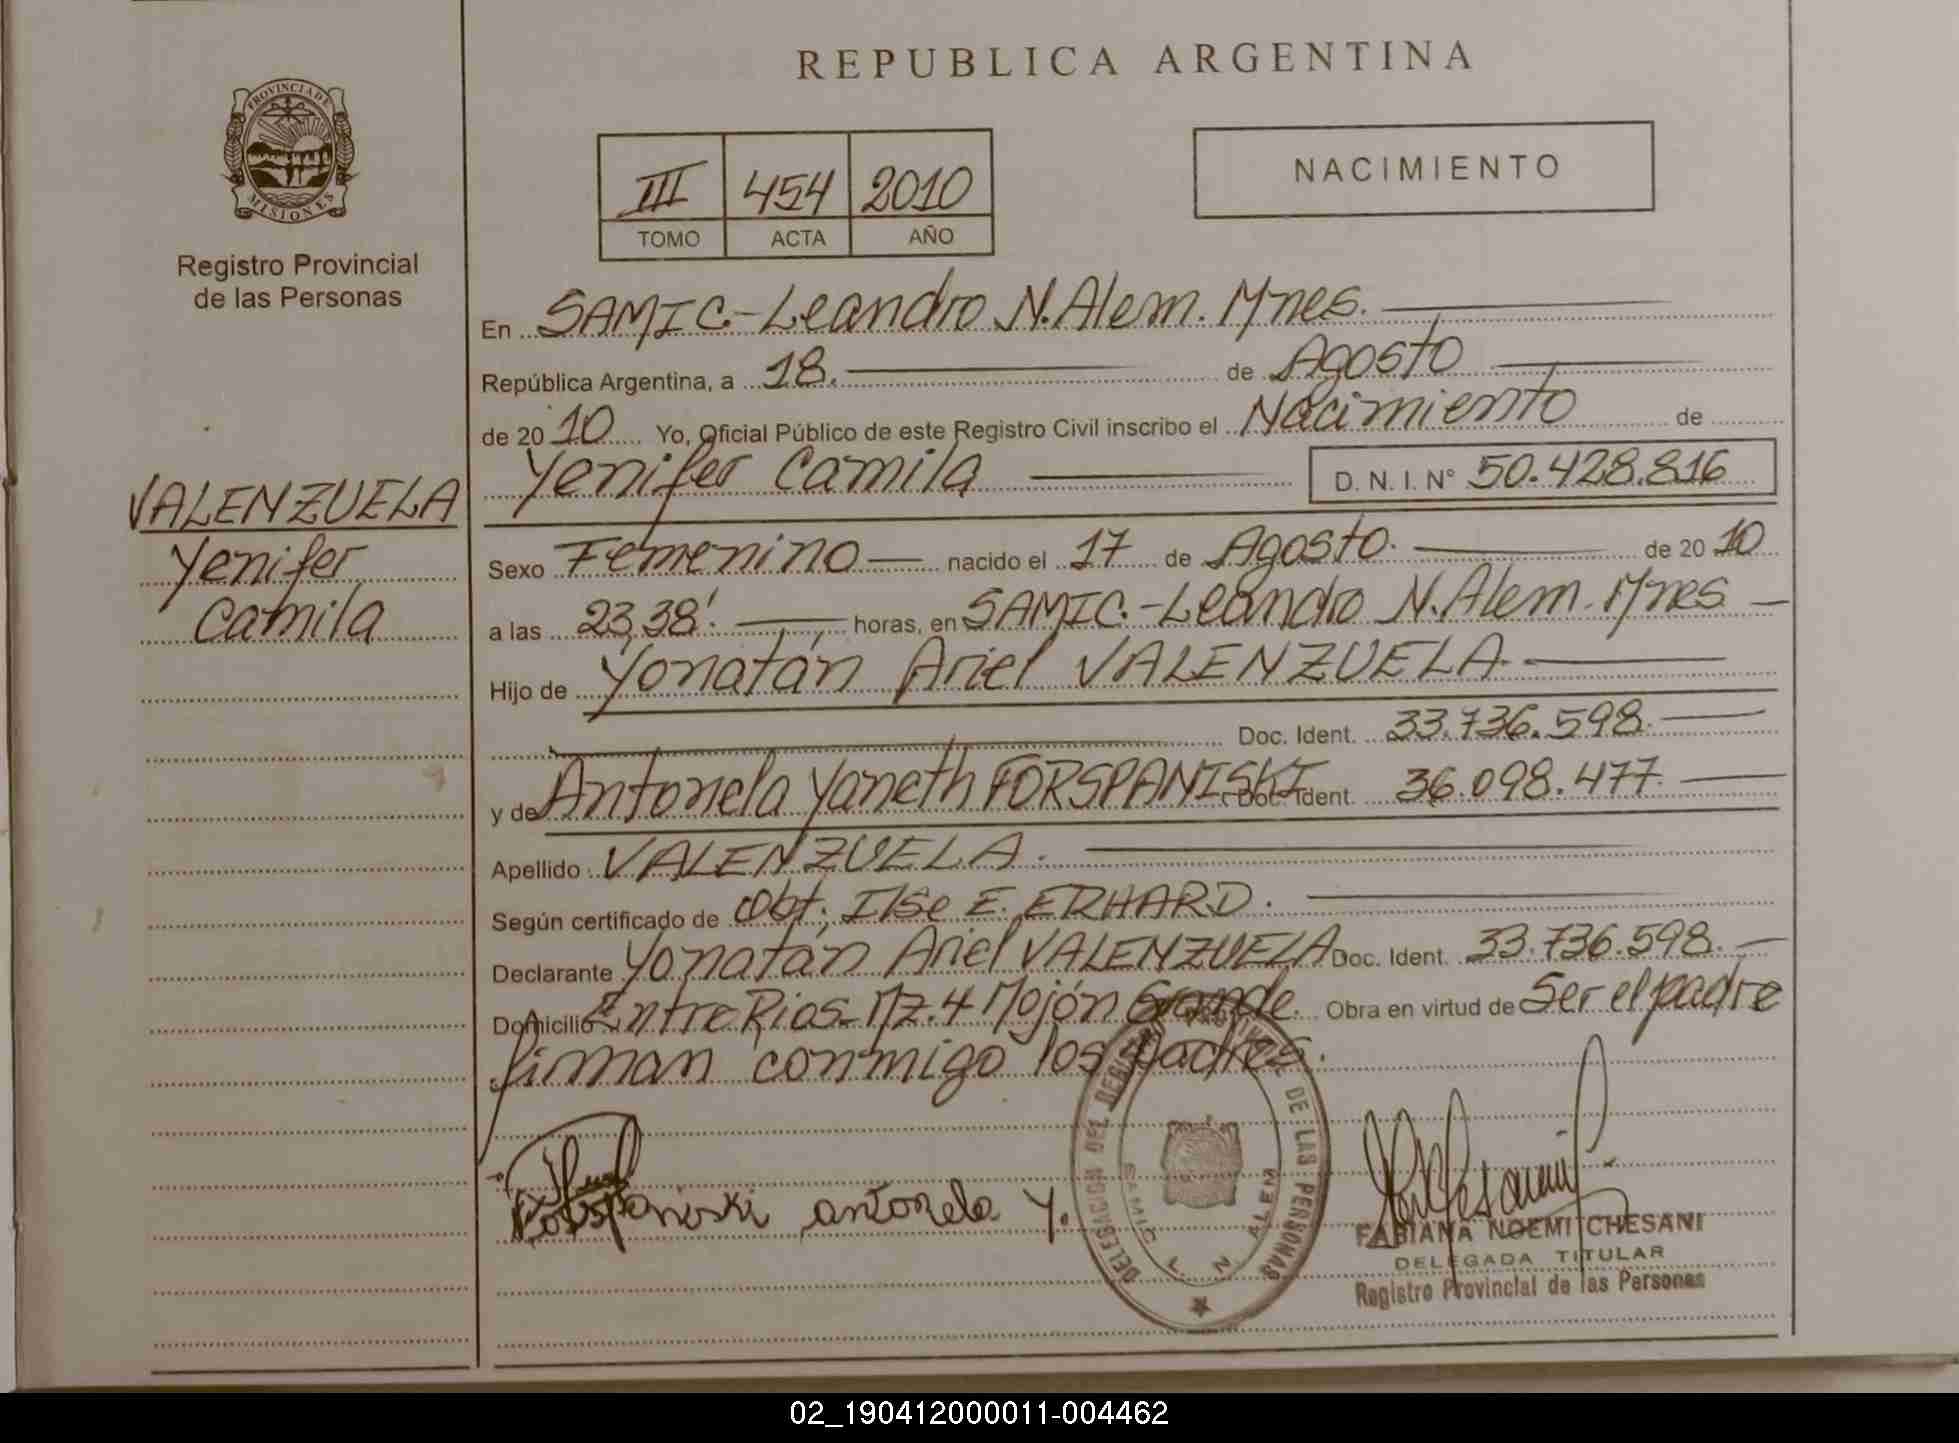 REPUBLICA ARGENTINA
PROVINCIA DE
MISIONES
Registro Provincial
de las Personas
III 454 2010
TOMO ACTA AÑO
NACIMIENTO
VALENZUELA
Yenifer
Camila
En SAMIC.-Leandro N.Alem. Mnes.
República Argentina, a 18. de Agosto
de 2010 Yo, Oficial Público de este Registro Civil inscribo el Nacimiento de
Yenifer Camila D. N. I. N° 50.428.816
Sexo Femenino nacido el 17 de Agosto. de 2010
a las 23,38'. horas, en SAMIC.-Leandro N.Alem. Mnes
Hijo de Yonatán Ariel VALENZUELA.
Doc. Ident. 33.736.598.
y de Antonela Yaneth FORSPANISKI Doc. Ident. 36.098.477.
Apellido VALENZUELA.
Según certificado de Obt. Ilse E. ERHARD.
Declarante Yonatán Ariel VALENZUELA Doc. Ident. 33.736.598.
Domicilio Entre Rios-Mz.4 Mojón Grande. Obra en virtud de Ser el padre
firman conmigo los padres.
Forspaniski antonela Y.
DELEGACION DEL REGISTRO PROVINCIAL DE LAS PERSONAS
SAMIC L. N. ALEM
FABIANA NOEMI CHESANI
DELEGADA TITULAR
Registro Provincial de las Personas
02_190412000011-004462